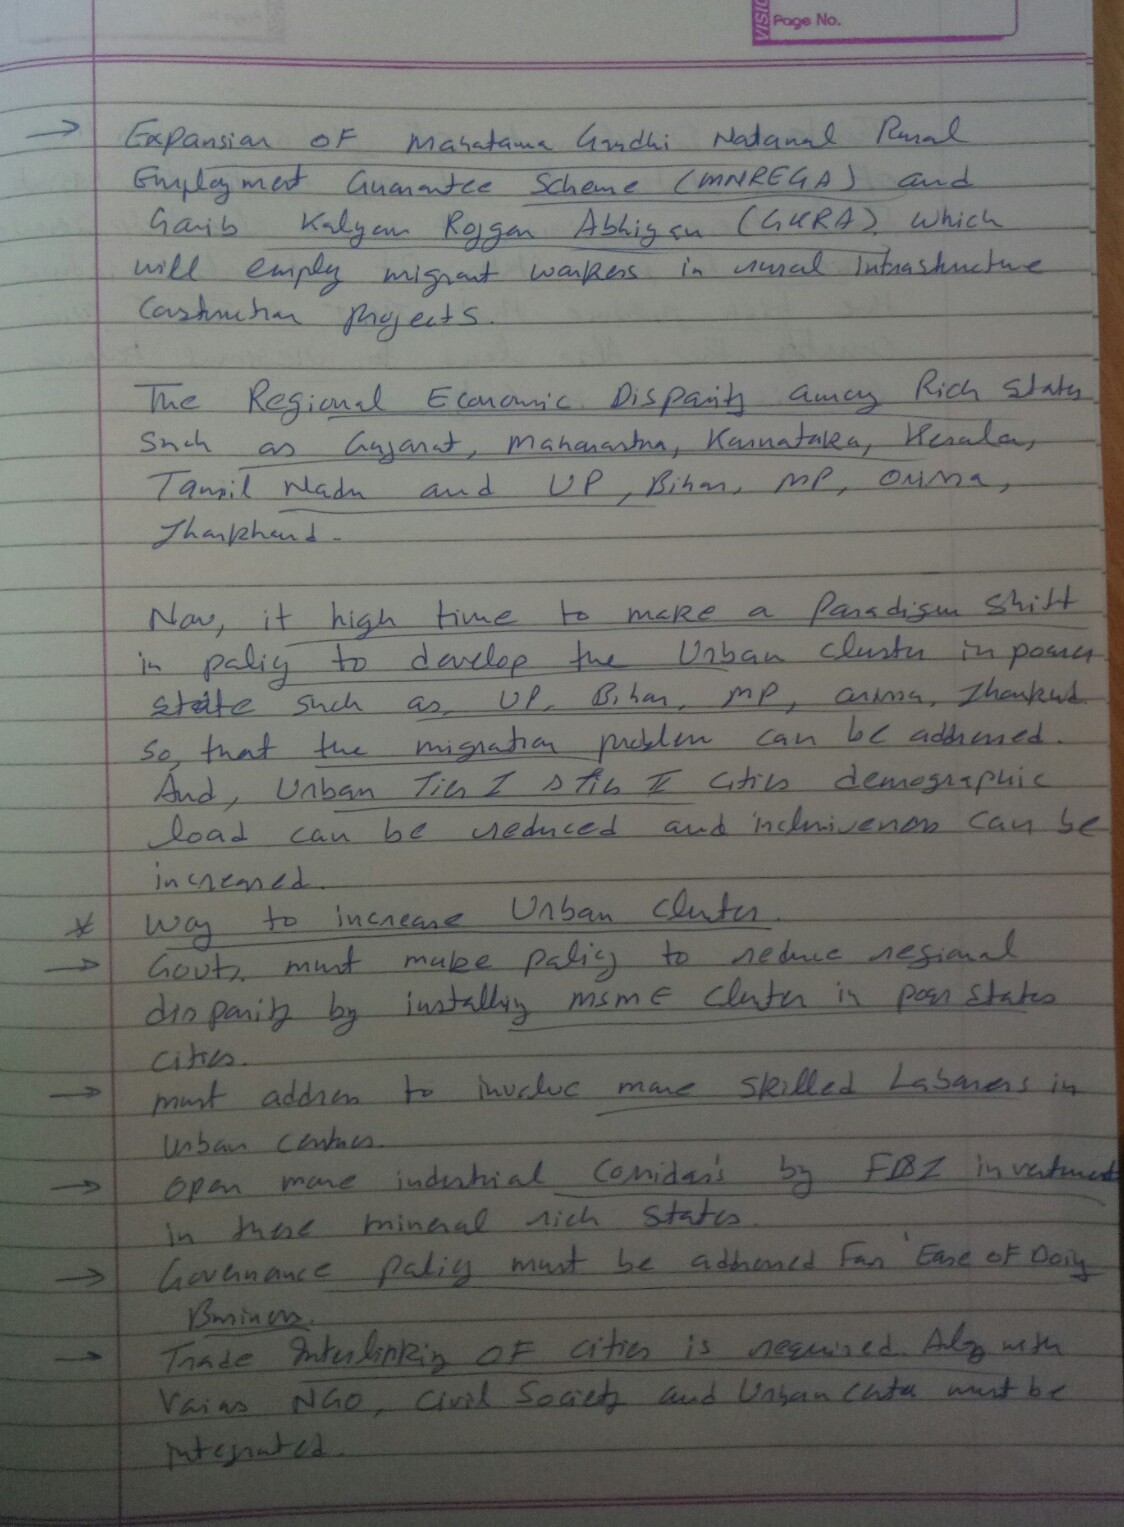 VISIO
Page No.
→ Expansion OF Mahatama Gandhi National Rural
Employment Guarantee Scheme (MNREGA) and
Garib Kalyan Rojgar Abhigan (GKRA) which
will employ migrant workers in rural Infrastructure
Construction Projects.
The Regional Economic Disparity among Rich States
Such as Gujarat, Maharastra, Karnataka, Kerala,
Tamil Nadu and UP, Bihar, MP, Orissa,
Jharkhand.
Now, it high time to make a Paradigm Shift
in policy to develop the Urban Cluster in poorer
state such as UP, Bihar, MP, orissa, Jharkhand
so, that the migration problem can be addressed.
And, Urban Tier I & Tier II cities demographic
load can be reduced and inclusiveness can be
increased.
* Way to increase Urban Cluster.
→ Govts. must make policy to reduce regional
disparity by installing MSME Cluster in poor States
cities.
→ must address to involve more skilled Laborers in
urban centres.
→ open more industrial Corridors by FDI investment
in these mineral rich States.
→ Governance policy must be addressed For 'Ease OF Doing
Business.
→ Trade Interlinking OF cities is required. Along with
Various NGO, Civil Society and Urban must be
integrated.